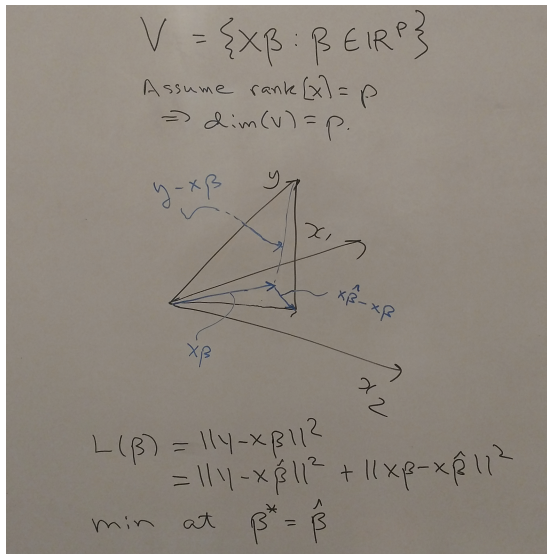 V = {Xβ : β ∈ ℝᵖ}
Assume rank[x] = p
⇒ dim(v) = p.
y
y - xβ
x₁
xβ̂ - xβ
xβ
x₂
L(β) = ||y - xβ||²
= ||y - xβ̂||² + ||xβ - xβ̂||²
min at β* = β̂